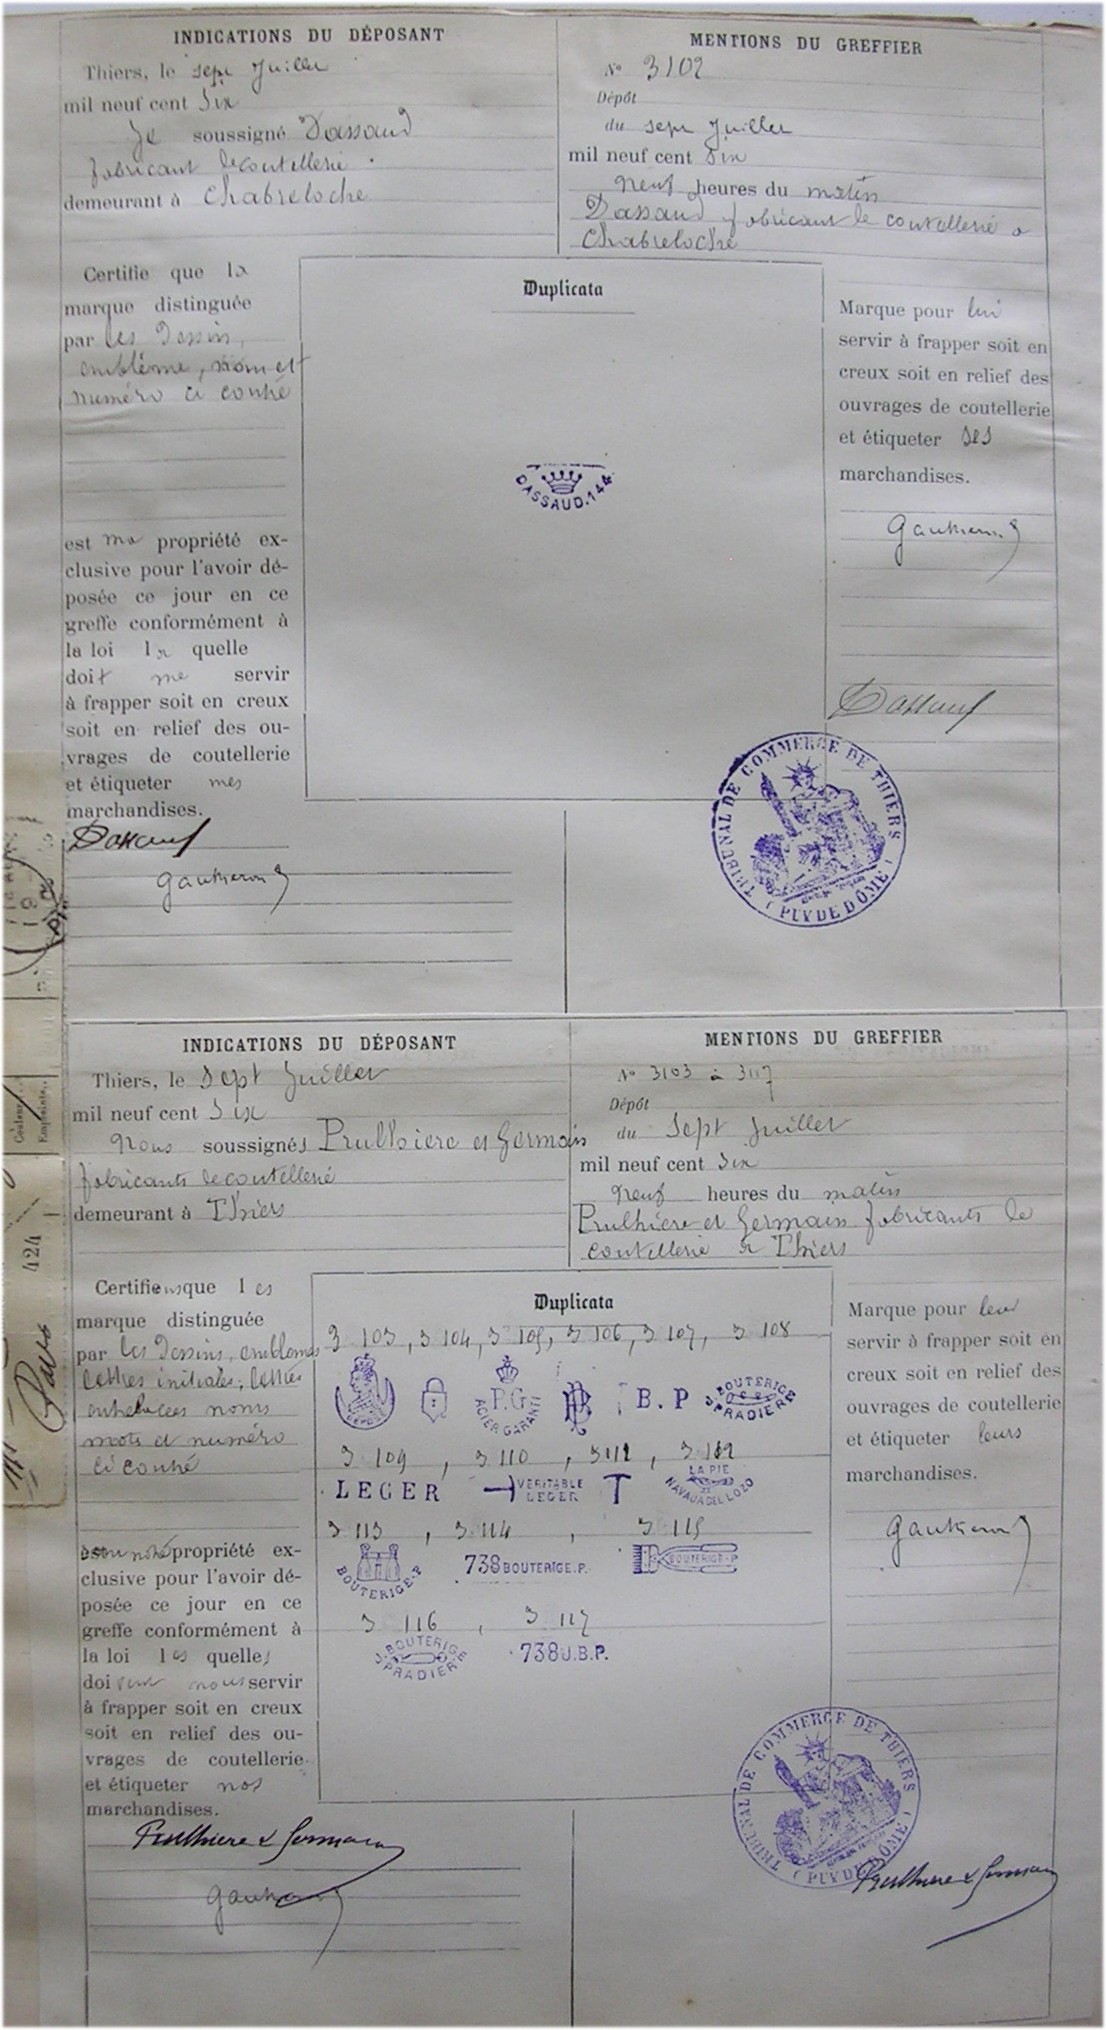 INDICATIONS DU DÉPOSANT
Thiers, le sept Juillet
mil neuf cent Six
Je soussigné Dassaud
fabricant de coutellerie
demeurant à Chabreloche
MENTIONS DU GREFFIER
N° 3102
Dépôt
du sept Juillet
mil neuf cent Six
neuf heures du matin
Dassaud fabricant de coutellerie a
Chabreloche
Certifie que la
marque distinguée
par les Dessins,
emblême, nom et
numéro ci contre
est ma propriété ex-
clusive pour l'avoir dé-
posée ce jour en ce
greffe conformément à
la loi la quelle
doit me servir
à frapper soit en creux
soit en relief des ou-
vrages de coutellerie
et étiqueter mes
marchandises.
Dassaud
Duplicata
DASSAUD.144.
Marque pour lui
servir à frapper soit en
creux soit en relief des
ouvrages de coutellerie
et étiqueter ses
marchandises.
Dassaud
TRIBUNAL DE COMMERCE DE THIERS
(PUY DE DÔME)
424
Couleur
Empreinte
INDICATIONS DU DÉPOSANT
Thiers, le Sept Juillet
mil neuf cent Six
nous soussignés Prulhiere et Germain
fabricants de coutellerie
demeurant à Thiers
MENTIONS DU GREFFIER
N° 3103 à 3117
Dépôt
du Sept Juillet
mil neuf cent Six
neuf heures du matin
Prulhiere et Germain fabricants de
coutellerie à Thiers
Certifions que les
marque distinguée
par les Dessins, emblemes
lettres initiales, lettres
entrelacées noms
mots et numéro
ci contre
sont notre propriété ex-
clusive pour l'avoir dé-
posée ce jour en ce
greffe conformément à
la loi les quelles
doivent nous servir
à frapper soit en creux
soit en relief des ou-
vrages de coutellerie
et étiqueter nos
marchandises.
Prulhiere & Germain
Duplicata
3103, 3104, 3105, 3106, 3107, 3108
DEPOSE
P.G
ACIER GARANTI
B.P
J. BOUTERIGE
PRADIERE
3109, 3110, 3111, 3112
LEGER
VERITABLE
LEGER
T
LA PIE
NAVAJA DEL LOZO
3113, 3114, 3115
BOUTERIGE-P
738 BOUTERIGE.P.
BOUTERIGE-P
3116, 3117
J. BOUTERIGE
PRADIERE
738 J.B.P.
Marque pour leur
servir à frapper soit en
creux soit en relief des
ouvrages de coutellerie
et étiqueter leurs
marchandises.
TRIBUNAL DE COMMERCE DE THIERS
(PUY DE DÔME)
Prulhiere & Germain